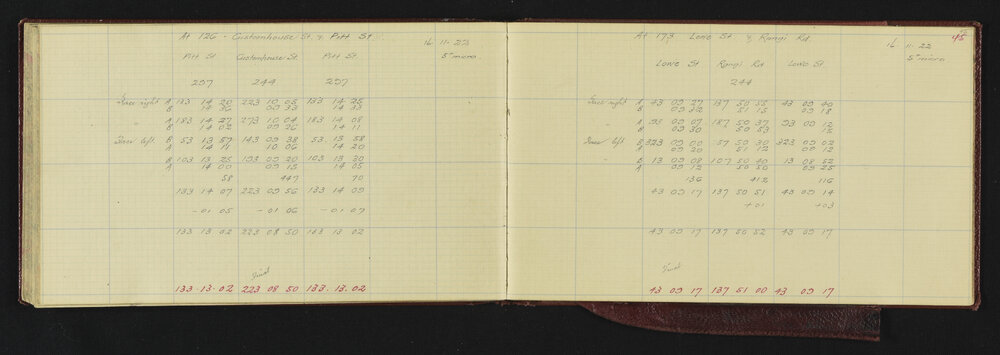 At 126 - Customhouse St. & Pitt St.
16.11.22
Pitt St Customhouse St. Pitt St
5" micro.
297 244 297
Face right A 133 14 20 223 10 05 133 14 25
B 14 36 09 33 14 33
A 183 14 27 273 10 04 183 14 08
B 14 02 09 26 14 11
Face left B 53 13 59 143 09 38 53 13 58
A 14 14 10 06 14 20
B 103 13 25 193 09 20 103 13 30
A 14 00 09 15 14 05
58 447 70
133 14 07 223 09 56 133 14 09
- 01 05 - 01 06 - 01 07
133 13 02 223 08 50 133 13 02
Final
133.13.02 223 08 50 133.13.02
At 173 Lowe St & Rangi Rd
45
16.11.22
Lowe St Rangi Rd Lowe St.
5" micro
244
Face right A 43 09 27 137 50 55 43 09 40
B 09 32 51 15 09 18
" A 93 09 07 187 50 37 93 09 12
B 09 30 50 53 15
Face left B 323 09 00 57 50 30 323 09 02
A 09 20 51 12 09 12
" B 13 09 08 107 50 40 13 08 52
A 09 12 50 50 09 25
136 412 116
43 09 17 137 50 51 43 09 14
+01 +03
43 09 17 137 50 52 43 09 17
Final
43 09 17 137 51 00 43 09 17